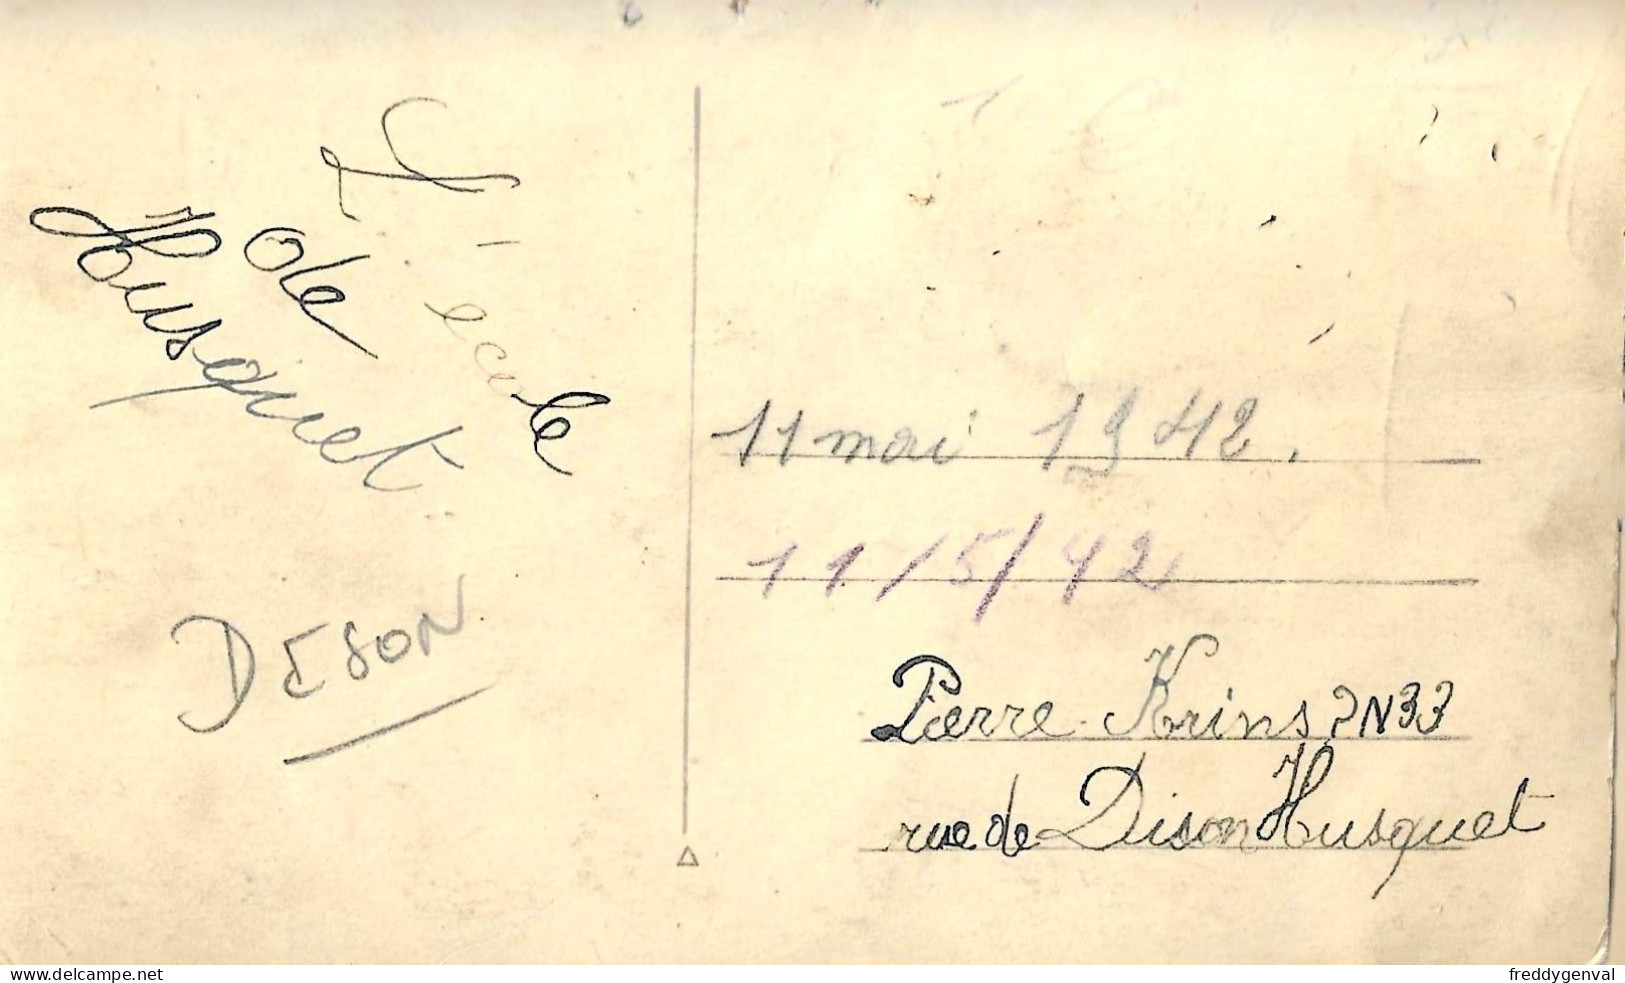 L'école
de
Husquet
DESON
11 mai 1942.
11/5/42
Pierre Krins 2N33
rue de Dison Husquet
www.delcampe.net
freddygenval